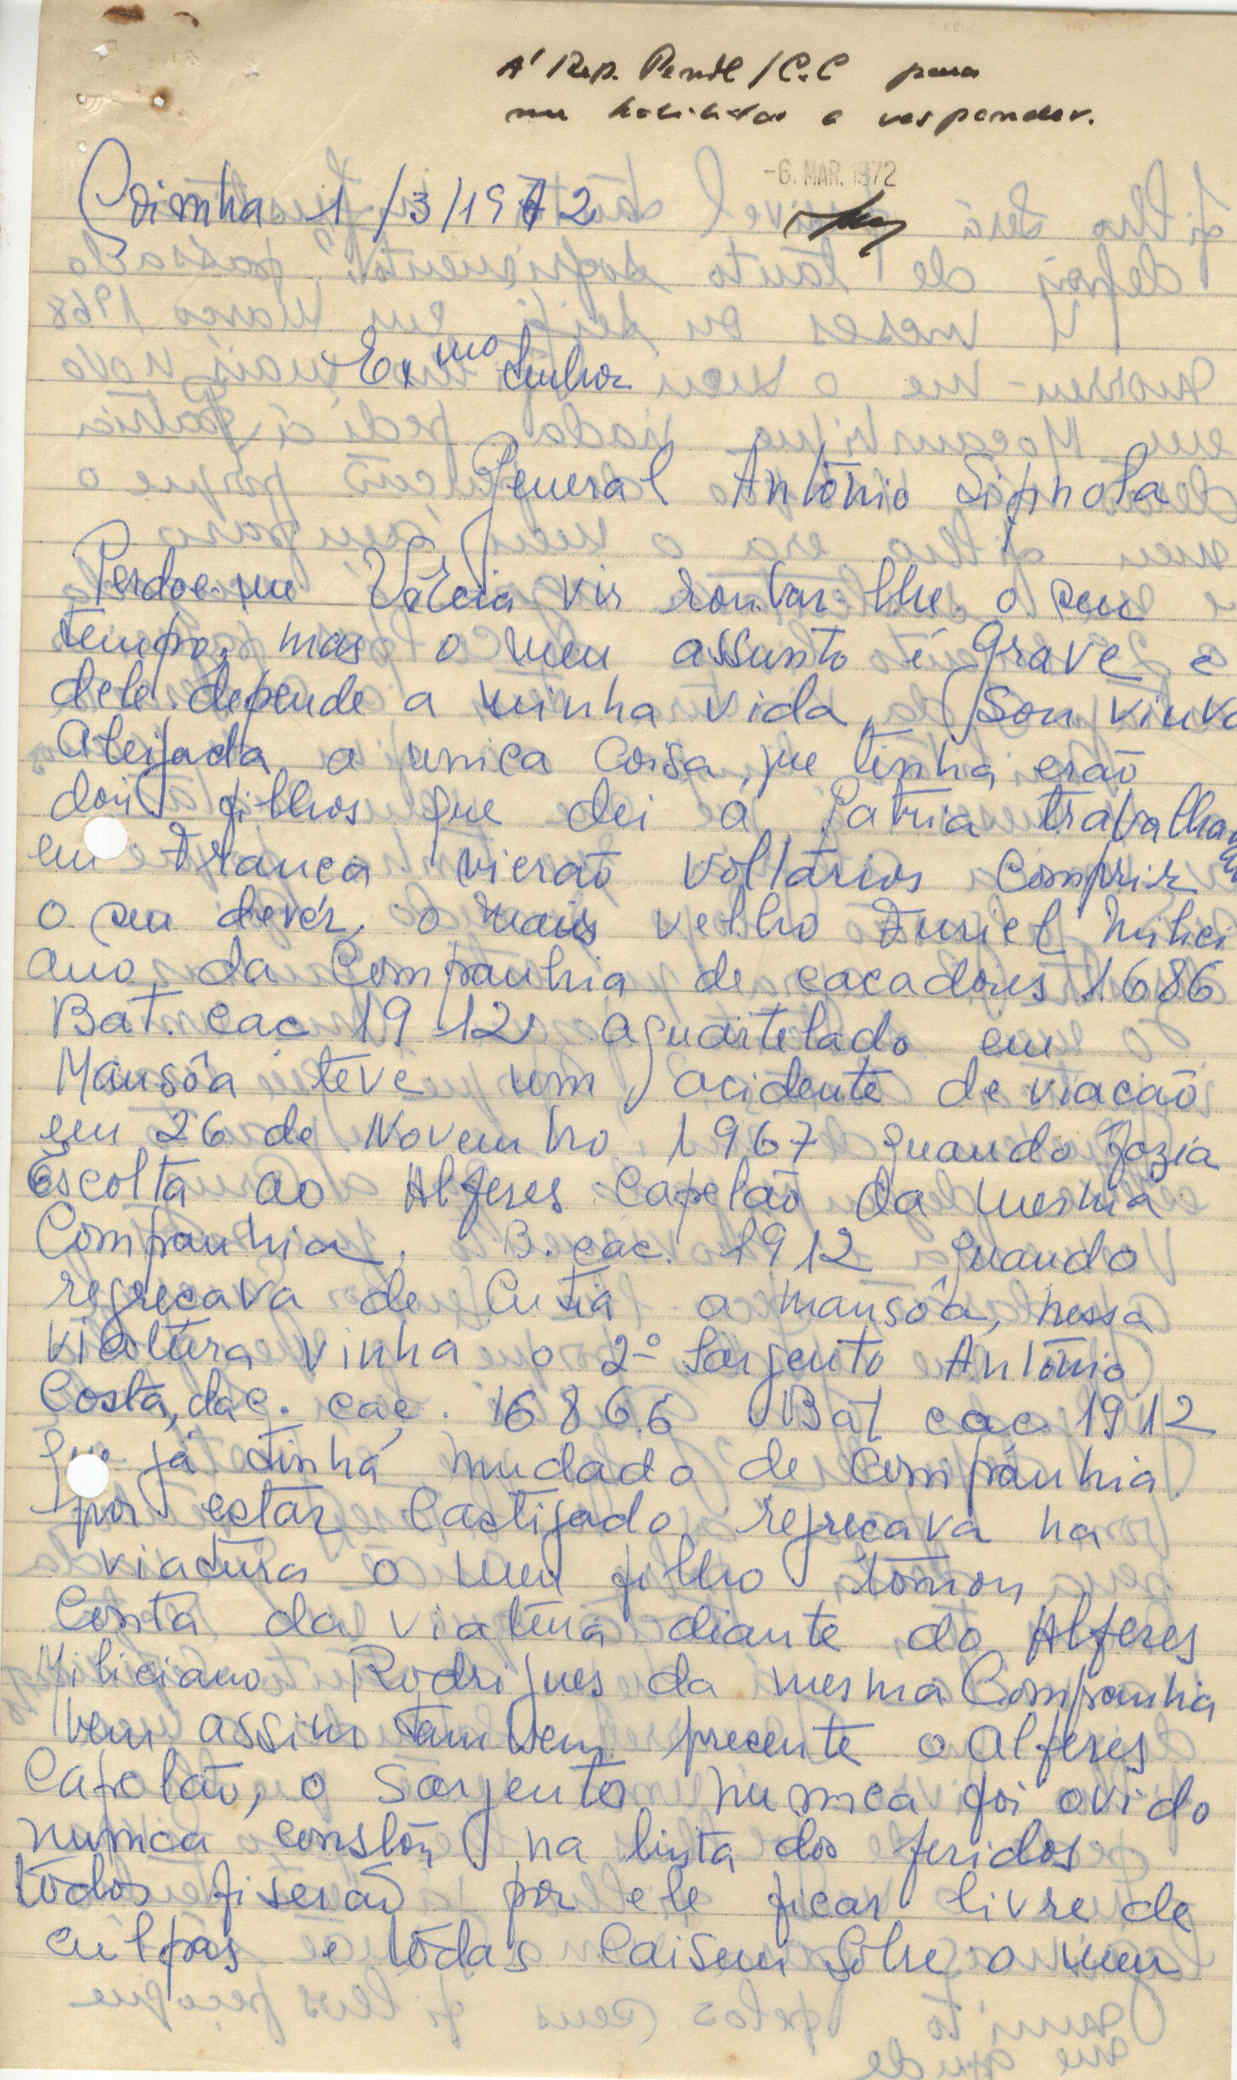 A' Rep. Penal/C.C para
me habilitar a responder.
-6. MAR. 1972
Coimbra 1/3/1972
Exmo Senhor
General António Sipnola
Perdoe-me Vªécia vir roubar-lhe o seu
tempo, mas o meu assunto é grave e
dele depende a minha vida, Sou viuva
Aleijada a unica coisa que tinha, erão
dois filhos que dei á Patria trabalhan
em Franca vierão voltarios comprir
o seu devér, o mais velho Furiel Milici
ano da Companhia de cacadores 1686
Bat. cac 1912 aguartelado em
Mansôa teve um acidente de viacão
em 26 de Novembro 1967 quando fazia
Escolta ao Alferes Capelão da mesma
Companhia. B. cac. 1912 quando
regrecava de Cutia a mansôa, nessa
viatura vinha o 2º Sargento António
Costa, da C. cac. 16866 Bat cac 1912
que já tinha mudado de Companhia
por estar Castigado regrecava na
viatura o meu filho tomou
Conta da viatura diante do Alferes
Miliciano Rodrigues da mesma Companhia
bem assim tambem precente o Alferes
Capelão, o Sargento nunca foi ovido
nunca constou na lista dos feridos
todos fiserão por ele ficar livre de
culpas e todas caisem sobre o meu